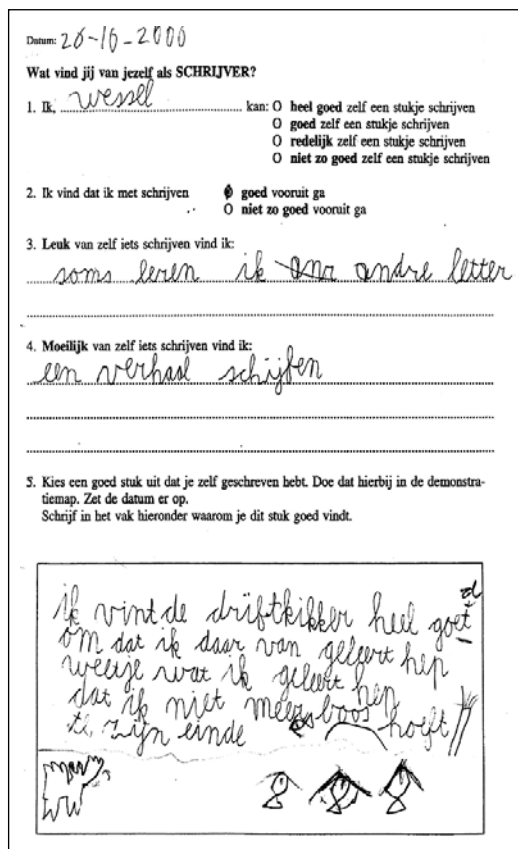 Datum: 26-10-2000
Wat vind jij van jezelf als SCHRIJVER?
1. Ik, wessel kan: O heel goed zelf een stukje schrijven
O goed zelf een stukje schrijven
O redelijk zelf een stukje schrijven
O niet zo goed zelf een stukje schrijven
2. Ik vind dat ik met schrijven O goed vooruit ga
O niet zo goed vooruit ga
3. Leuk van zelf iets schrijven vind ik:
soms leren ik andre letter
4. Moeilijk van zelf iets schrijven vind ik:
een verhaal schijfen
5. Kies een goed stuk uit dat je zelf geschreven hebt. Doe dat hierbij in de demonstra-
tiemap. Zet de datum er op.
Schrijf in het vak hieronder waarom je dit stuk goed vindt.
d
ik vint de driftkikker heel goet
om dat ik daar van geleert hep
weetje wat ik geleert hep
dat ik niet meer boos hoeft
te zijn einde